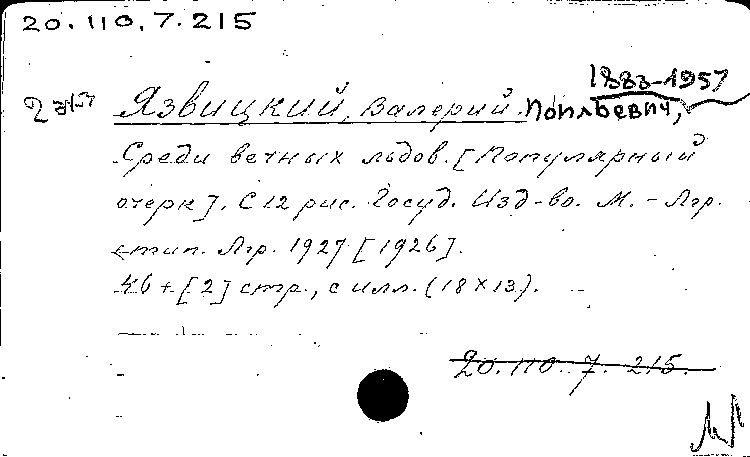 20.110.7.215
1883-1957
Язвицкий, Валерий Иоильевич,
Среди вечных льдов. [Популярный
очерк]. С 12 рис. Госуд. Изд-во. М. - Лгр.
тип. Лгр. 1927 [1926].
46 + [2] стр., с илл. (18×13).
20.110.7.215.